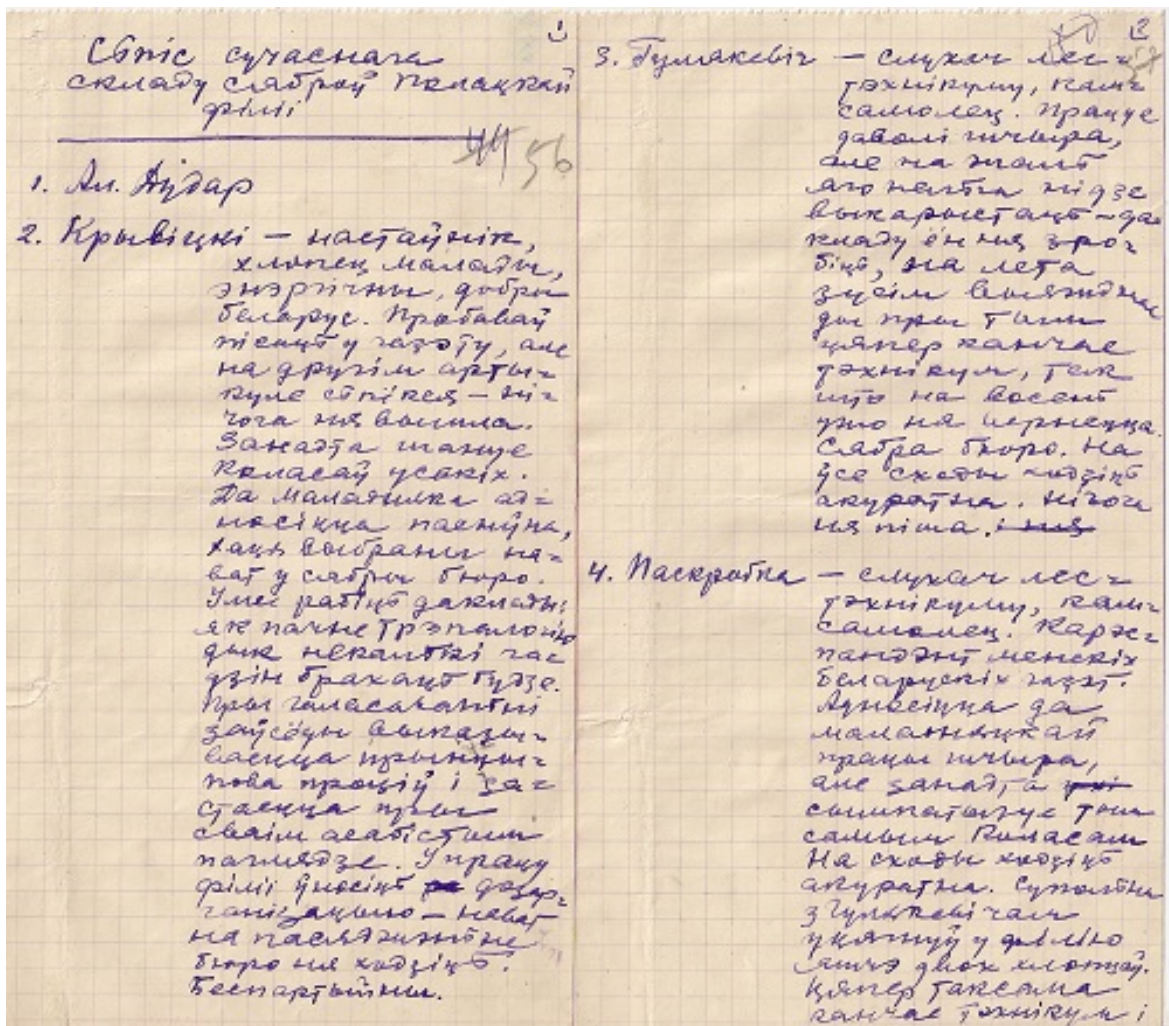 1)
Сьпіс сучаснага
складу сяброў Полацкай
філіі
44 56
1. Ал. Дудар
2. Крывіцкі — настаўнік,
хлопец малады,
энэргічны, добры
беларус. Пробаваў
пісаць у газэту, але
на другім арты-
куле сьпікся — ні-
чога ня вышла.
Занадта шануе
Коласаў усякіх.
Да Маладняка ад-
носіцца пасыўна,
хаця выбраны на-
ват у сябры бюро.
Умее рабіць даклады:
як пачне трэпалогію
дык некалькі га-
дзін брахаць будзе.
Пры галасаваньні
заўсёды выказы-
ваецца прынцы-
пова проціў і за-
стаецца пры
сваім асабістым
паглядзе. У працу
філіі ўносіць дэзар-
ганізацыю — нават
на паседжаньне
бюро ня ходзіць.
Беспартыйны.
2
3. Гумякевіч — слухач лес-
тэхнікуму, кам-
самолец. Працуе
даволі шчыра,
але на жаль
яго нельга нідзе
выкарыстаць — да-
кладу ён ня зро-
біць, на лета
зусім выяжджае
ды пры тым
цяпер канчае
тэхнікум, так
што на восень
ужо ня вернецца.
Сябра бюро. На
ўсе сходы ходзіць
акуратна. Нічога
ня піша. і ня
4. Паскробка — слухач лес-
тэхнікуму, кам-
самолец. Карэс-
пандэнт менскіх
беларускіх газэт.
Адносіцца да
маладняцкай
працы шчыра,
але занадта
сымпатызуе тым
самым Коласам
На сходы ходзіць
акуратна. Супольна
з Гумякевічам
уцягнуў у філію
яшчэ двох хлопцаў.
Цяпер таксама
канчае тэхнікум і